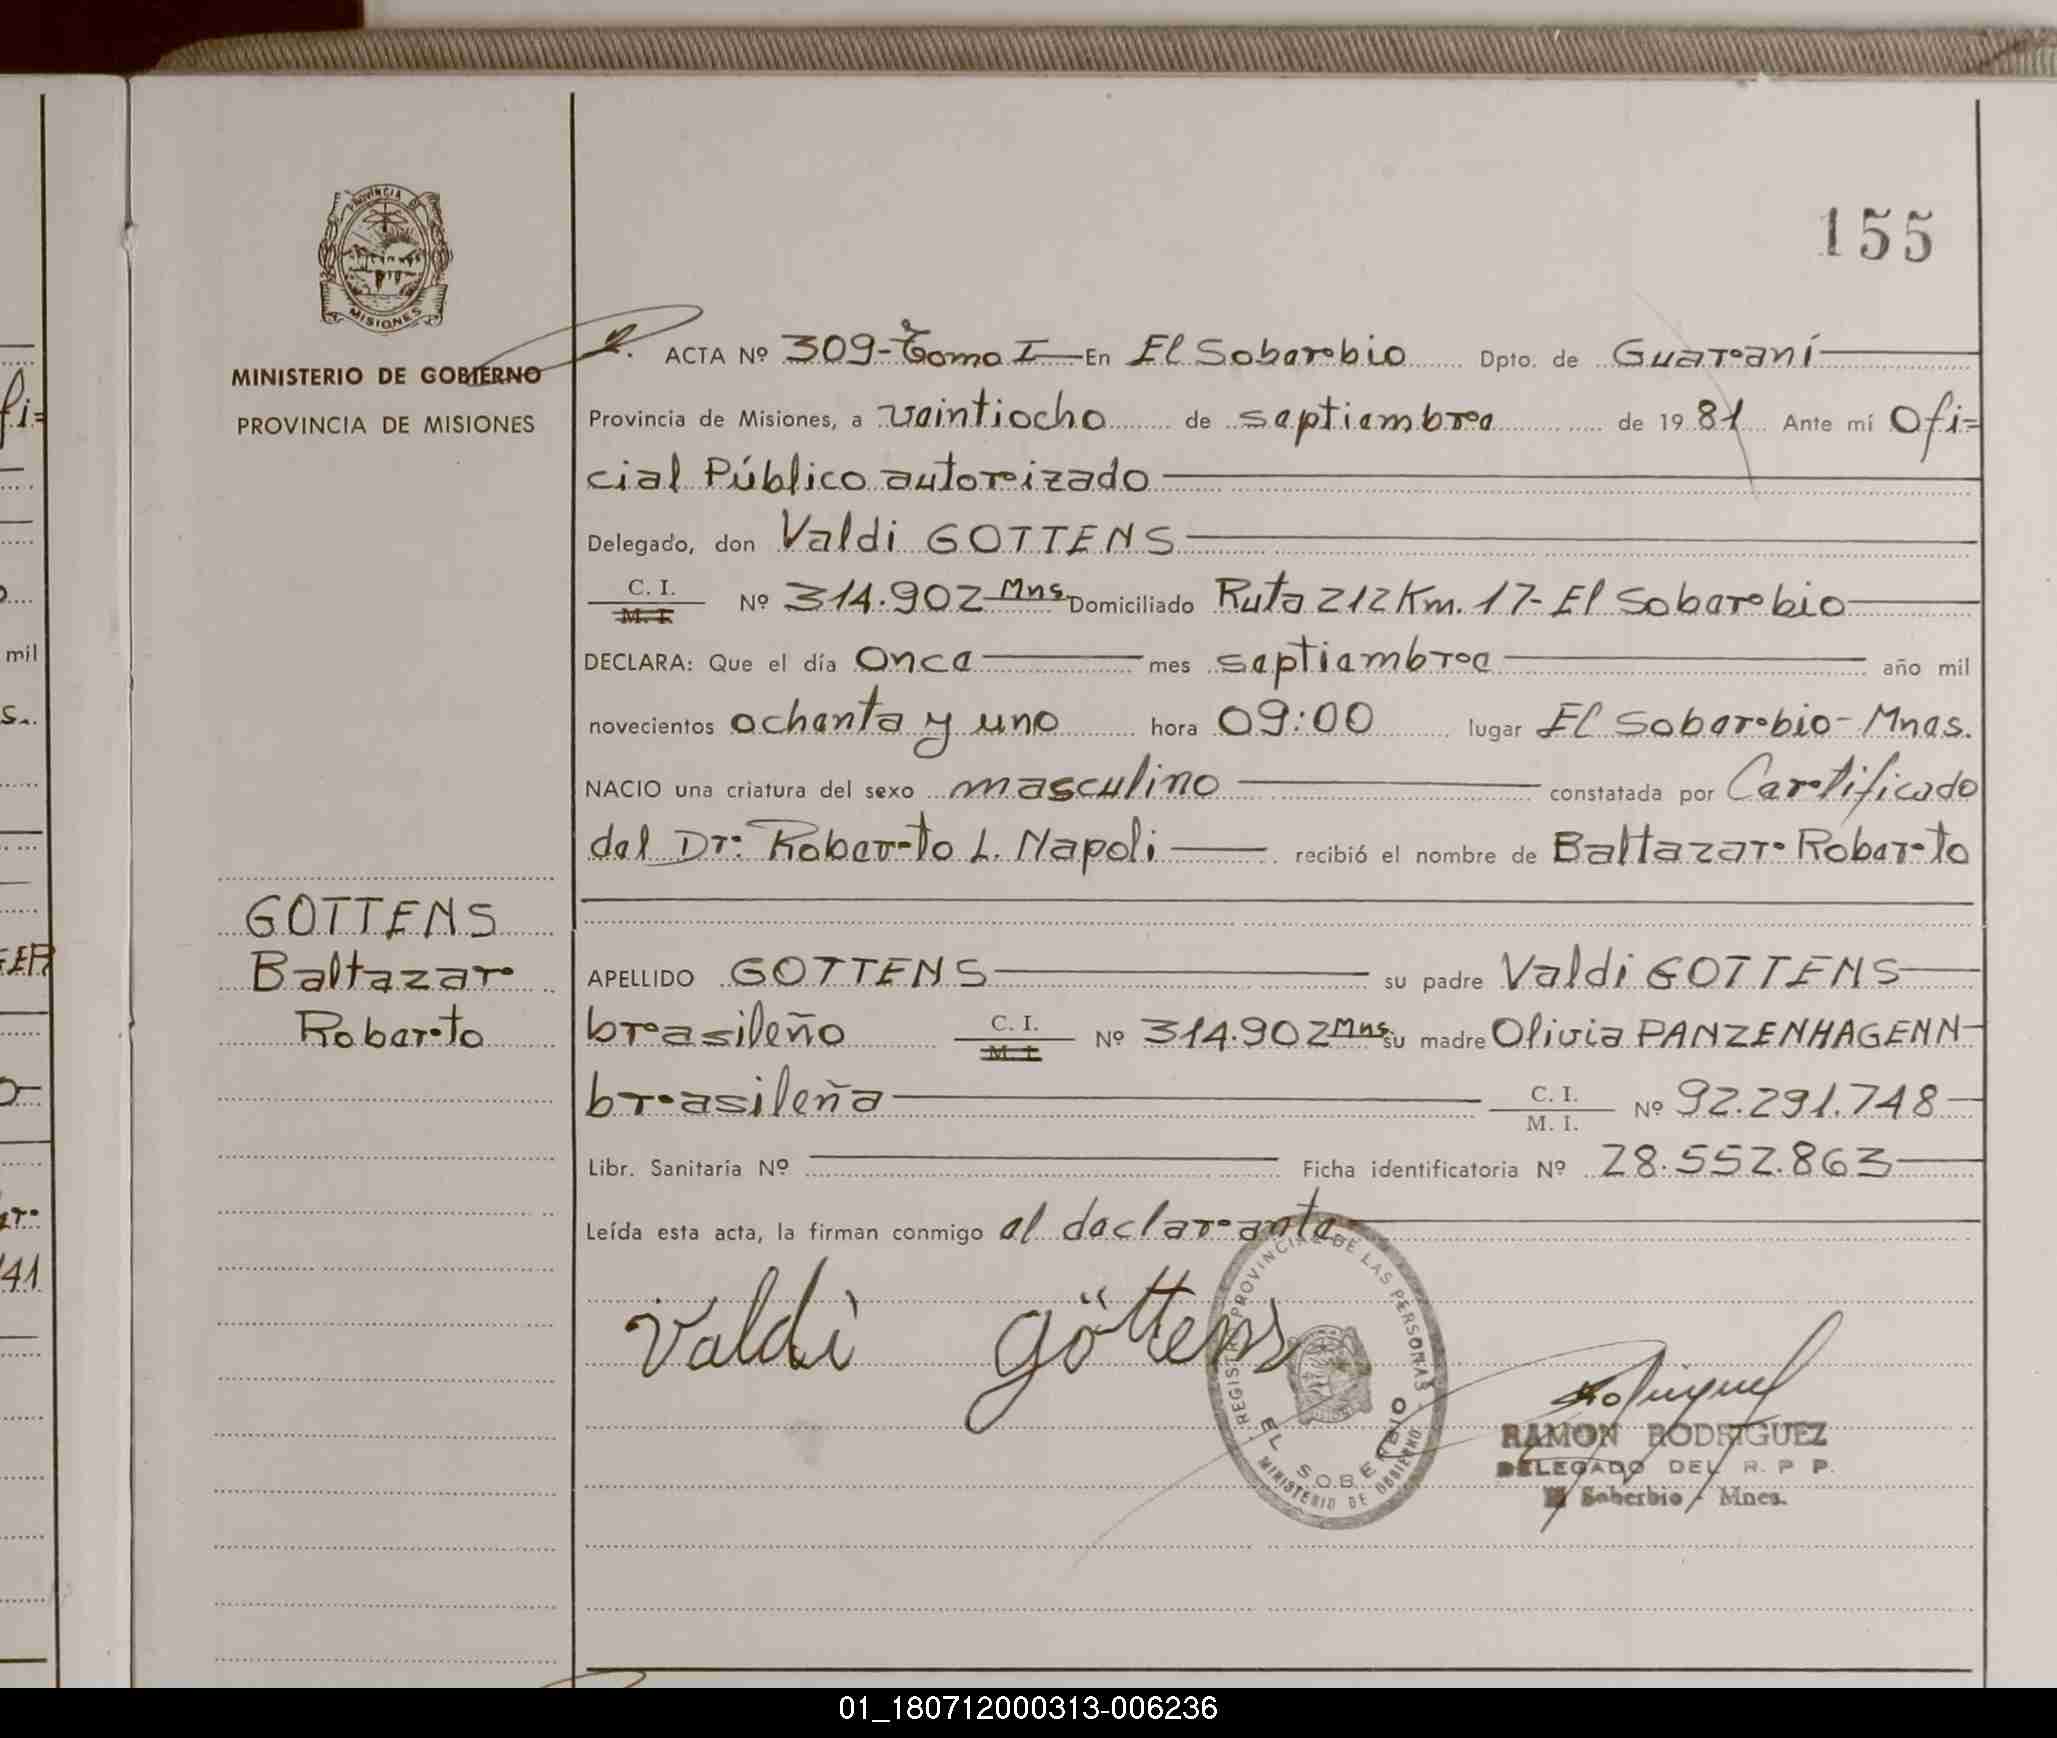 PROVINCIA DE
MISIONES
MINISTERIO DE GOBIERNO
PROVINCIA DE MISIONES
155
ACTA Nº 309-Tomo I En El Soberbio Dpto. de Guaraní
Provincia de Misiones, a veintiocho de septiembre de 1981 Ante mí Ofi=
cial Público autorizado
Delegado, don Valdi GOTTENS
C. I.
M. I. Nº 314.902 Mns. Domiciliado Ruta 212 Km. 17- El Soberbio
DECLARA: Que el día Once mes septiembre año mil
novecientos ochenta y uno hora 09:00 lugar El Soberbio- Mnes.
NACIO una criatura del sexo masculino constatada por Certificado
del Dr. Roberto L. Napoli recibió el nombre de Baltazar Roberto
GOTTENS
Baltazar
Roberto
APELLIDO GOTTENS su padre Valdi GOTTENS
brasileño C. I. M. I. Nº 314.902 Mns. su madre Olivia PANZENHAGENN
brasileña C. I. M. I. Nº 92.291.748
Libr. Sanitaria Nº Ficha identificatoria Nº 28.552.863
Leída esta acta, la firman conmigo el declarante
Valdi Göttens
REGISTRO PROVINCIAL DE LAS PERSONAS
EL SOBERBIO
MINISTERIO DE GOBIERNO
RAMON RODRIGUEZ
DELEGADO DEL R. P P.
El Soberbio - Mnes.
fi=
mil
s.
41
01_180712000313-006236